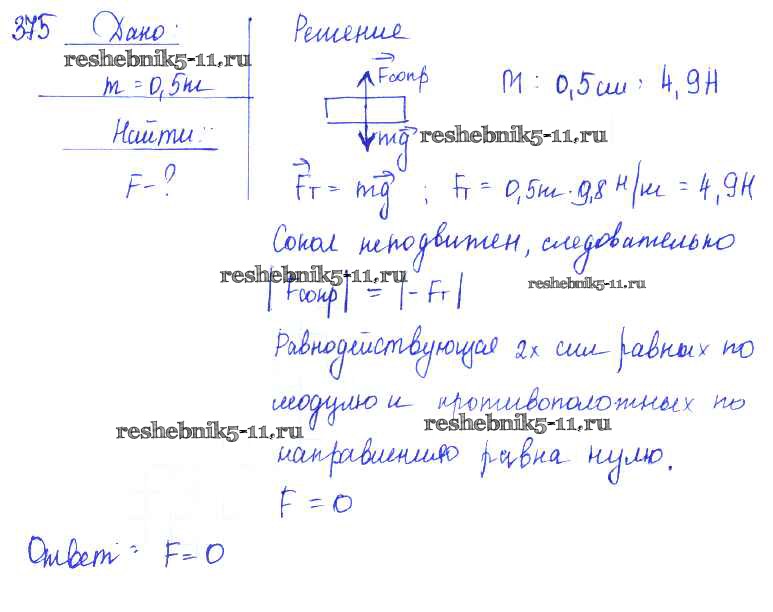 375 Дано: Решение
reshebnik5-11.ru
m = 0,5кг
Fсопр
М: 0,5см : 4,9Н
Найти:
mg
reshebnik5-11.ru
F - ?
Fт = mg ; Fт = 0,5кг · 9,8 Н/кг = 4,9Н
Сокол неподвижен, следовательно
reshebnik5-11.ru
|Fсопр| = |- Fт|
reshebnik5-11.ru
Равнодействующая 2х сил равных по
модулю и противоположных по
reshebnik5-11.ru
reshebnik5-11.ru
направлению равна нулю.
F = 0
Ответ: F = 0